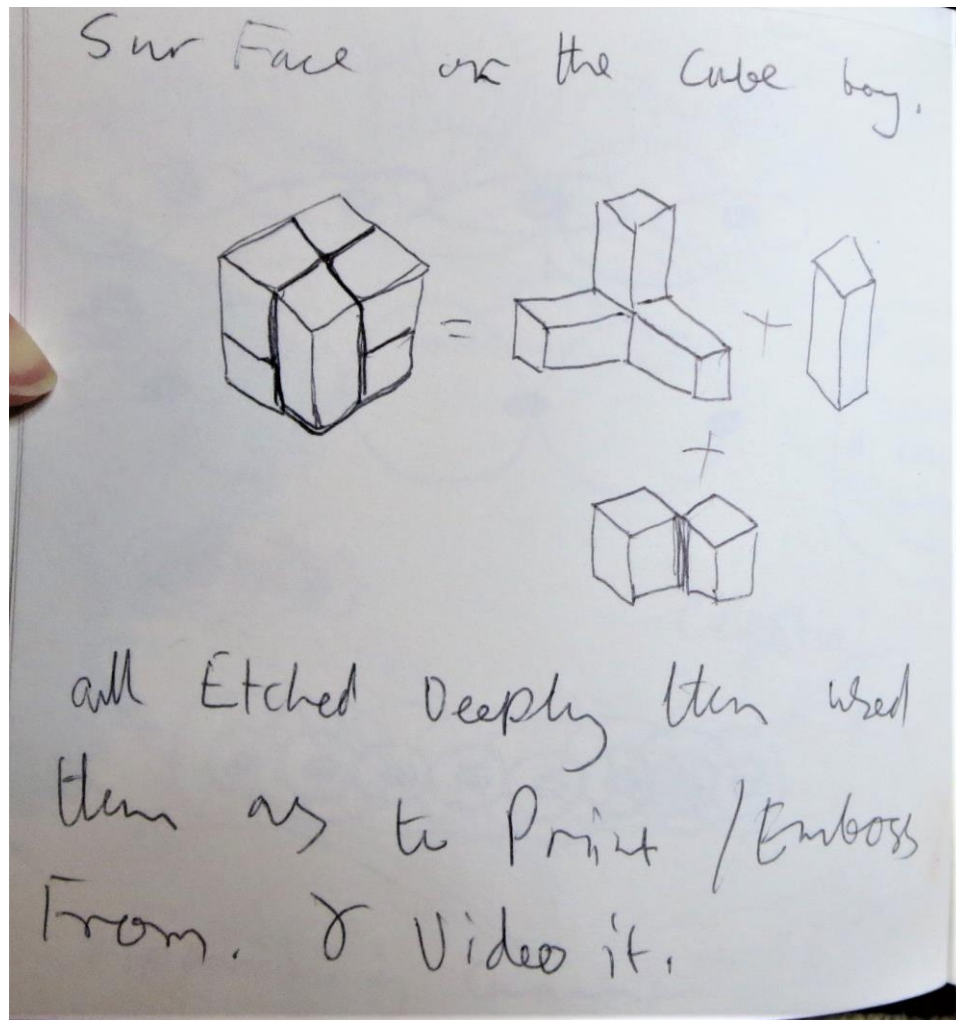 Sur Face on the Cube boy.
= + +
all Etched Deeply then used
them as to Print / Emboss
From. & Video it.